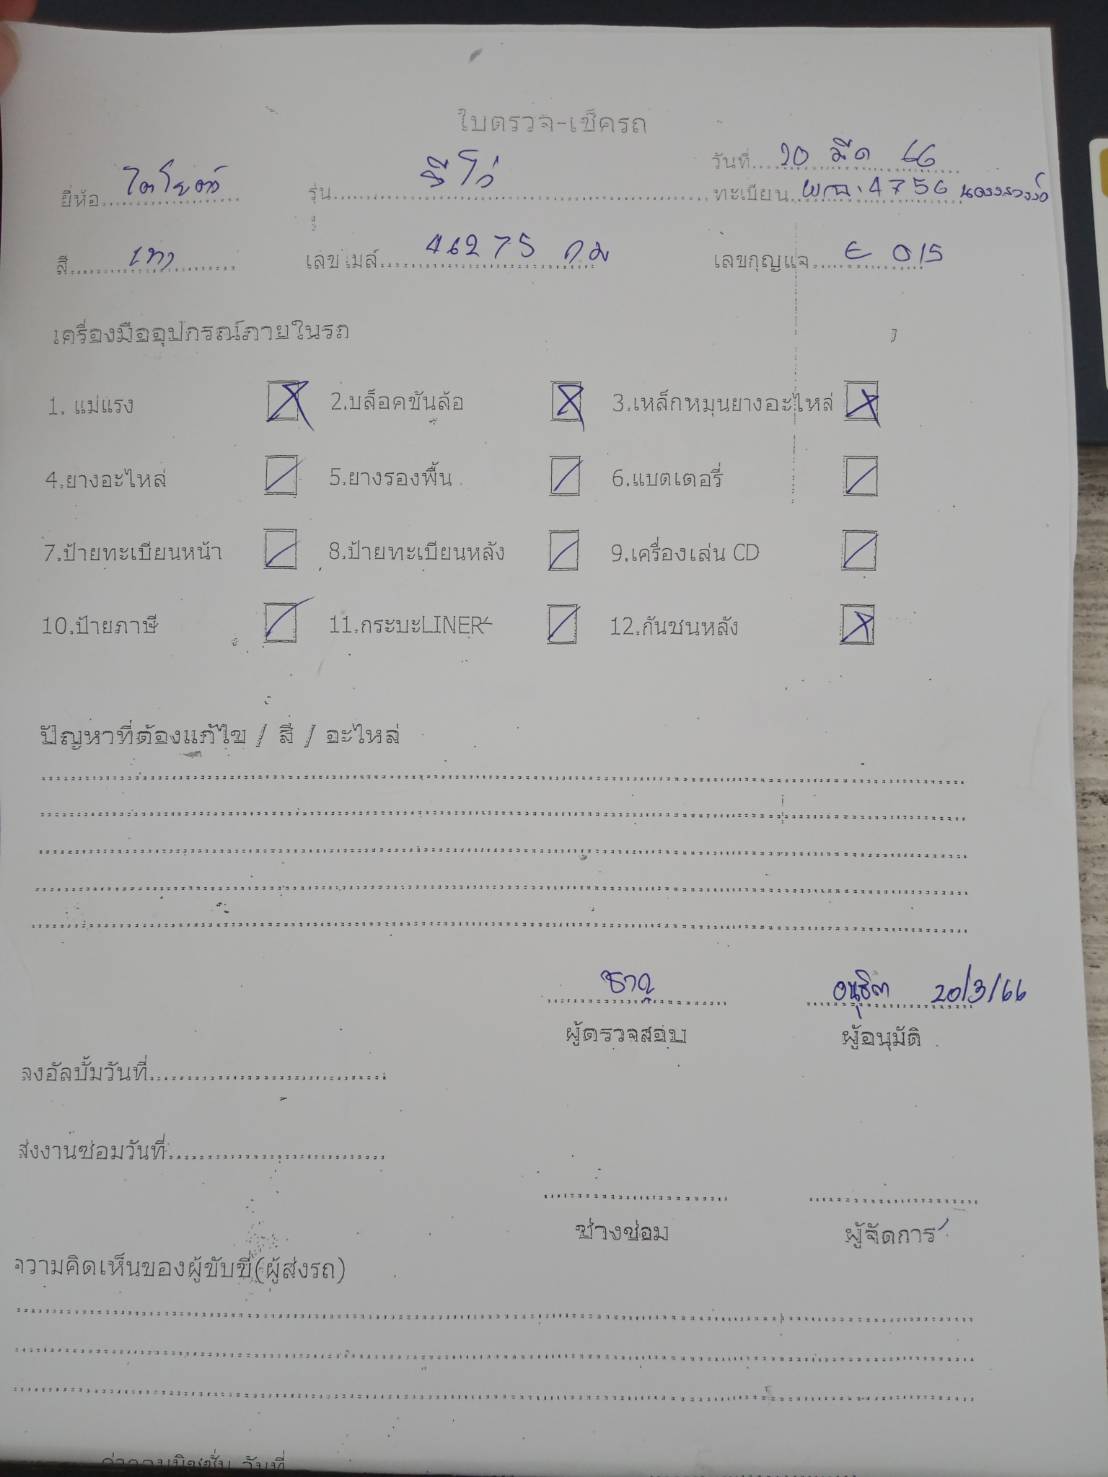 ใบตรวจ-เช็ครถ
วันที่ 20 มีค 66
ยี่ห้อ โตโยต้า รุ่น รีโว่ ทะเบียน 4756 นครสวรรค์
สี เทา เลขไมล์ 46275 กม เลขกุญแจ E 015
เครื่องมืออุปกรณ์ภายในรถ
1. แม่แรง 2.บล็อคขันล้อ 3.เหล็กหมุนยางอะไหล่
4.ยางอะไหล่ 5.ยางรองพื้น 6.แบตเตอรี่
7.ป้ายทะเบียนหน้า 8.ป้ายทะเบียนหลัง 9.เครื่องเล่น CD
10.ป้ายภาษี 11.กระบะLINER 12.กันชนหลัง
ปัญหาที่ต้องแก้ไข / สี / อะไหล่
20/3/66
ผู้ตรวจสอบ ผู้อนุมัติ
ลงอัลบั้มวันที่
ส่งงานซ่อมวันที่
ช่างซ่อม ผู้จัดการ
ความคิดเห็นของผู้ขับขี่(ผู้ส่งรถ)
ค่าคอมมิชชั่น วันที่